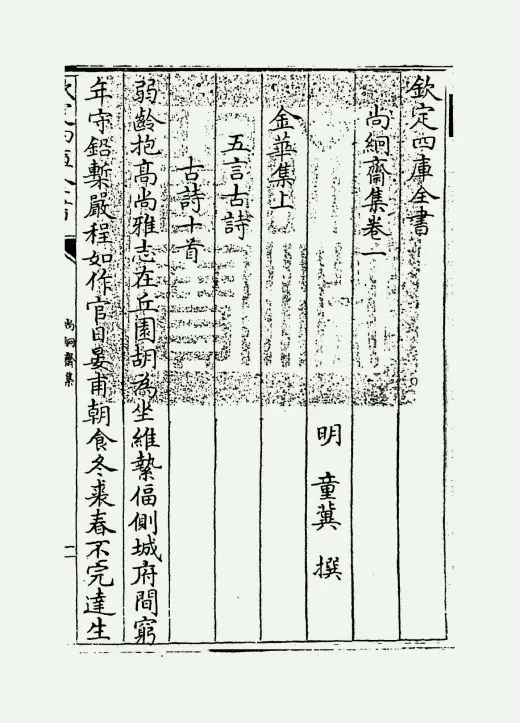 欽定四庫全書
尚絅齋集卷一
明 童冀 撰
金華集上
五言古詩
古詩十首
弱齡抱高尚雅志在丘園胡為坐維縶偪側城府間窮
年守鉛槧嚴程如作官日晏甫朝食冬裘春不完達生
尚絅齋集